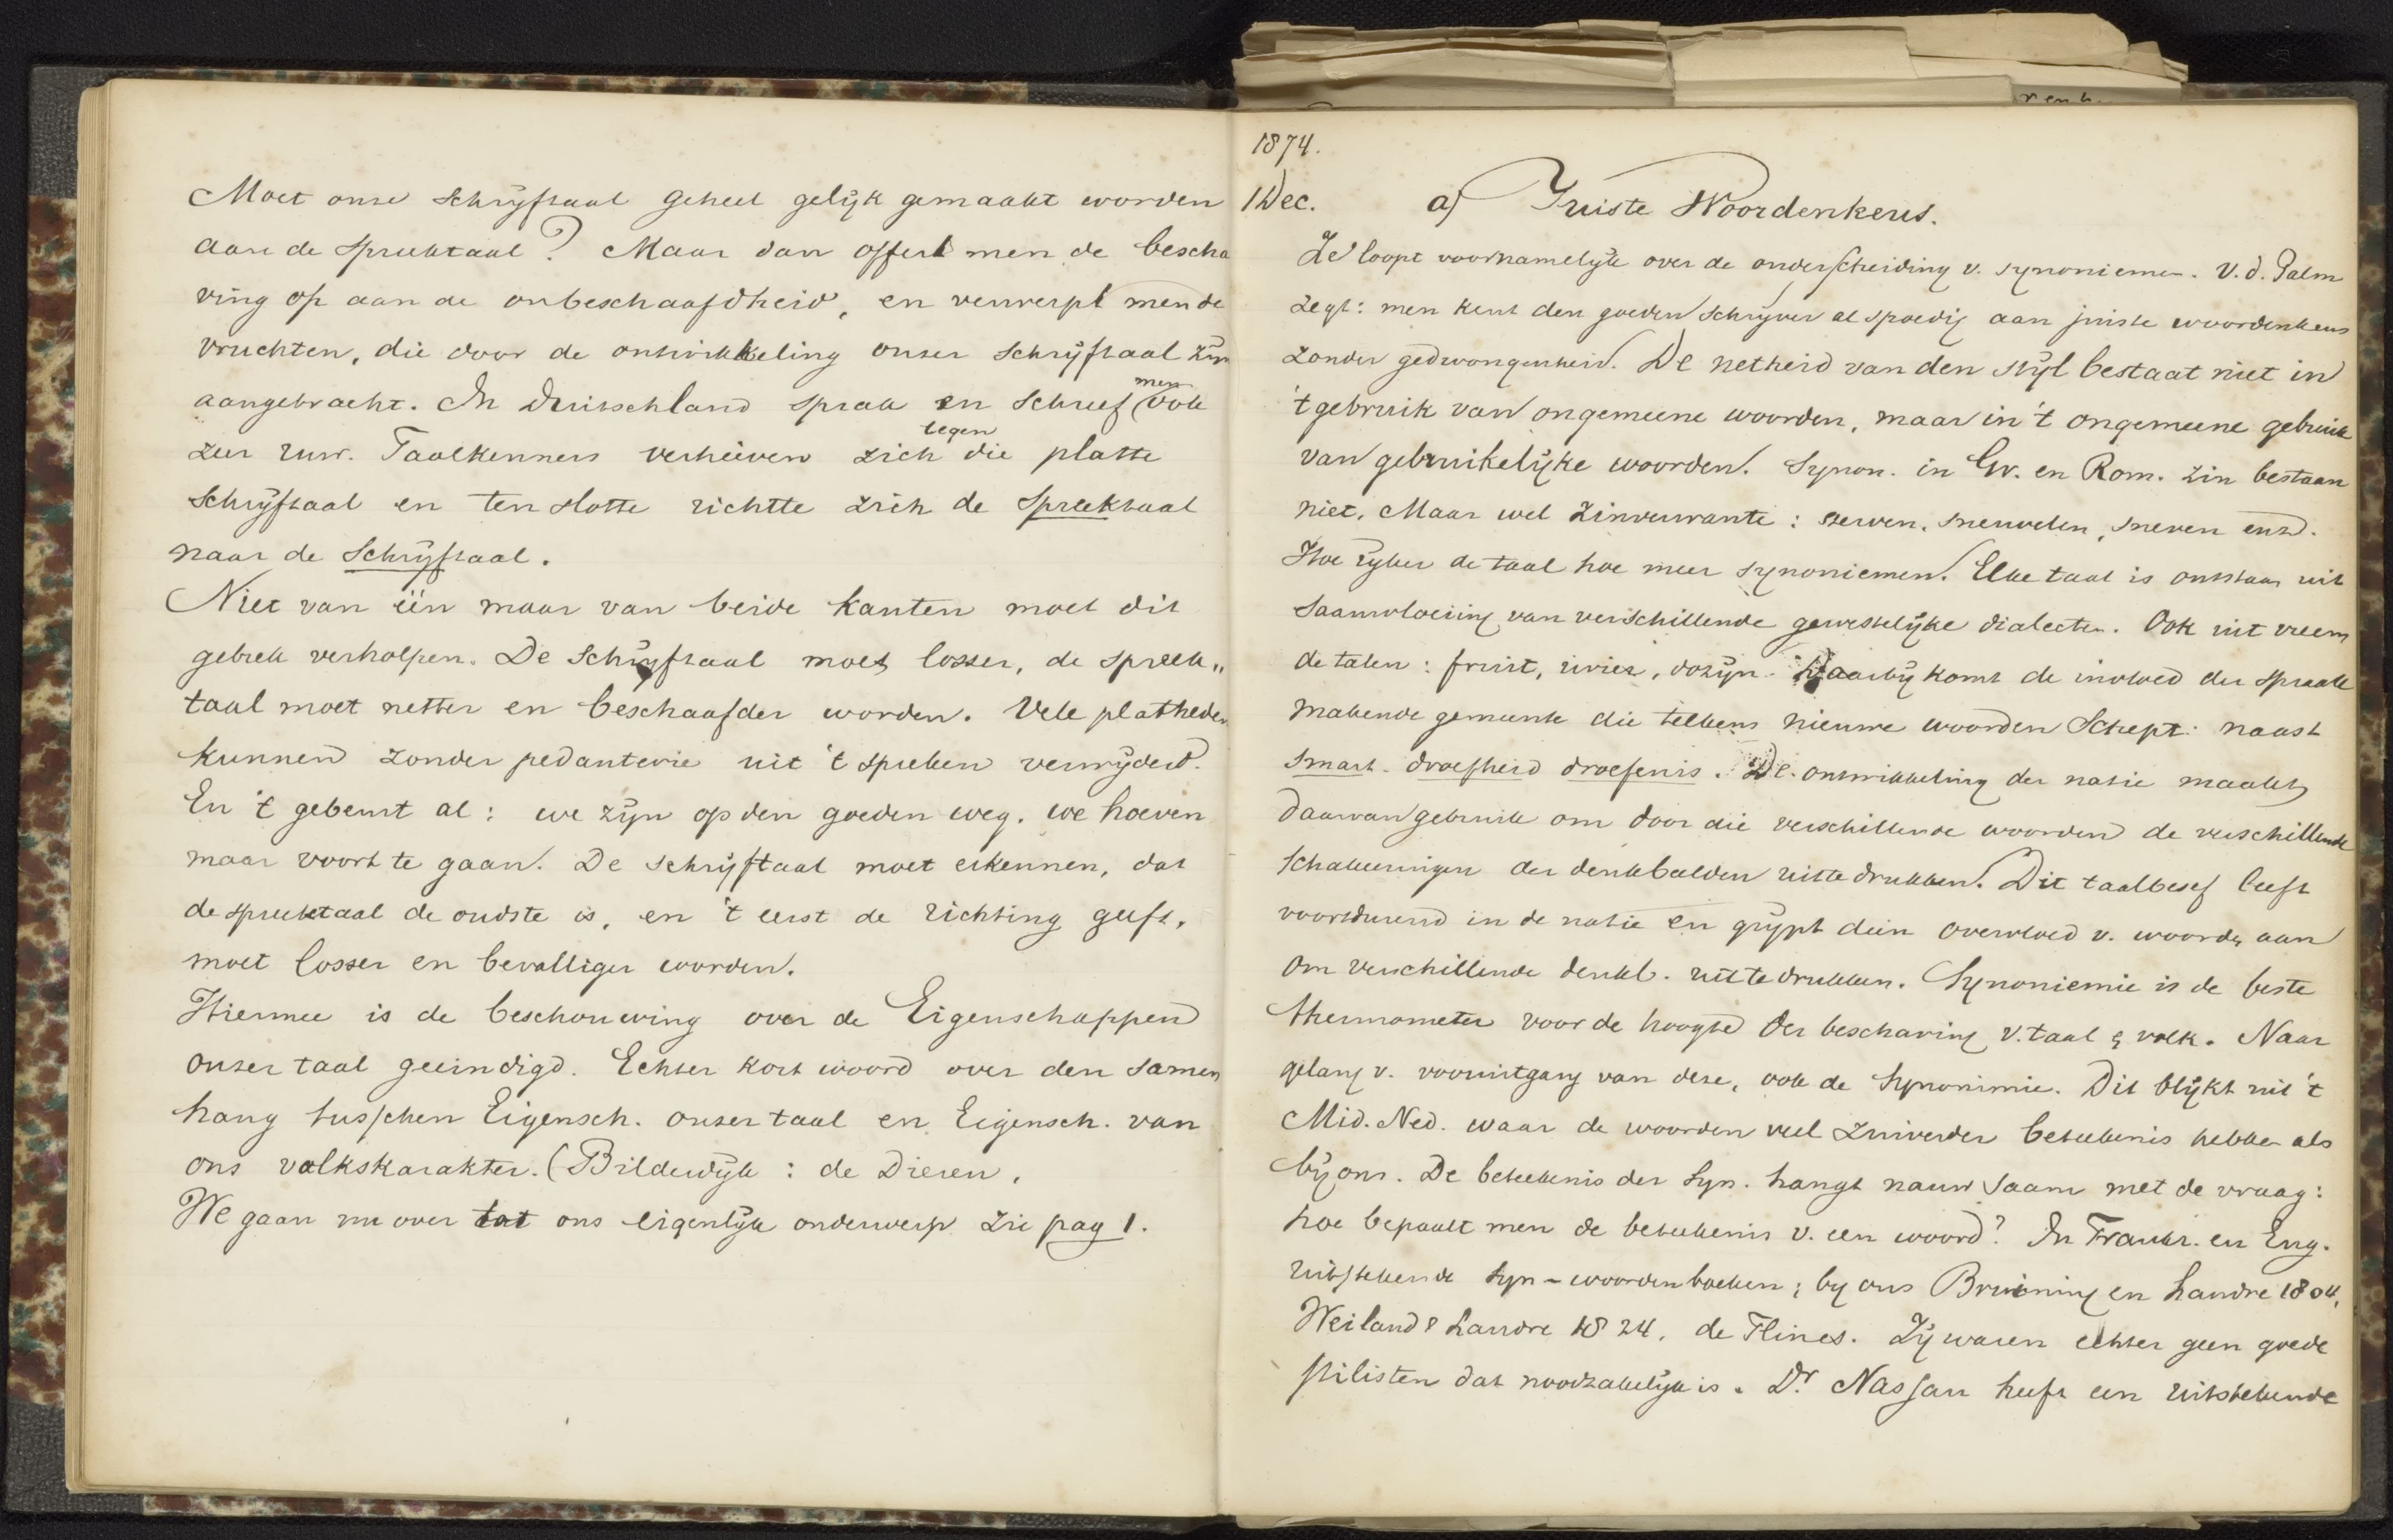 Moet onze schrijftaal geheel gelijk gemaakt worden
aan de spreektaal? Maar dan offert men de bescha
ving op aan de onbeschaafdheid, en verwerpt men de
vruchten, die door de ontwikkeling onzer schrijftaal zijn
aangebracht. In Duitschland sprak en schreef men ook
zeer ruw. Taalkenners verhieven zich tegen die platte
schrijftaal en ten slotte richtte zich de spreektaal
naar de schrijftaal.
Niet van één maar van beide kanten moet dit
gebrek verholpen. De schrijftaal moet losser, de spreek„
taal moet netter en beschaafder worden. Vele platheden
kunnen zonder pedanterie uit 't spreken verwijderd.
En 't gebeurt al: we zijn op den goeden weg. we hoeven
maar voort te gaan. De schrijftaal moet erkennen, dat
de spreektaal de oudste is, en 't eerst de richting geeft,
moet losser en bevalliger worden.
Hiermee is de beschouwing over de Eigenschappen
onzer taal geëindigd. Echter kort woord over den samen
hang tusschen Eigensch. onzer taal en Eigensch. van
ons volkskarakter. (Bilderdijk: de Dieren.
We gaan nu over tot ons eigenlijk onderwerp zie pag 1.
1874.
1 Dec. a) Juiste Woordenkeus.
Ze loopt voornamelijk over de onderscheiding v. synoniemen. V. d. Palm
zegt: men kent den goeden schrijver al spoedig aan juiste woordenkeus
zonder gedwongenheid. De netheid van den stijl bestaat niet in
't gebruik van ongemeene woorden, maar in 't ongemeene gebruik
van gebruikelijke woorden. Synon. in Gr. en Rom. zin bestaan
niet. Maar wel zinverwante: sterven, sneuvelen, sneven enz.
Hoe rijker de taal hoe meer synoniemen. Elke taal is ontstaan uit
saamvloeiing van verschillende gewestelijke dialecten. Ook uit vreem
de talen: fruit, rivier, dozijn. Daarbij komt de invloed der spraak
makende gemeente die telkens nieuwe woorden schept: naast
smart - droefheid droefenis. De ontwikkeling der natie maakt
daarvan gebruik om door die verschillende woorden de verschillende
schakeeringen der denkbeelden uit te drukken. Dit taalbesef leeft
voortdurend in de natie en grijpt dien overvloed v. woorden aan
om verschillende denkb. uit te drukken. Synoniemie is de beste
thermometer voor de hoogte der beschaving v. taal & volk. Naar
gelang v. vooruitgang van deze, ook de synonimie. Dit blijkt uit 't
Mid. Ned. waar de woorden veel zuiverder beteekenis hebben als
bij ons. De beteekenis der syn. hangt nauw saam met de vraag:
hoe bepaalt men de beteekenis v. een woord? In Frankr. en Eng.
uitstekende syn-woordenboeken; by ons Bruining en Landre 1804,
Weiland & Landre 1824. de Flines. Zij waren echter geen goede
stilisten dat noodzakelijk is. Dr. Nassau heeft een uitstekende